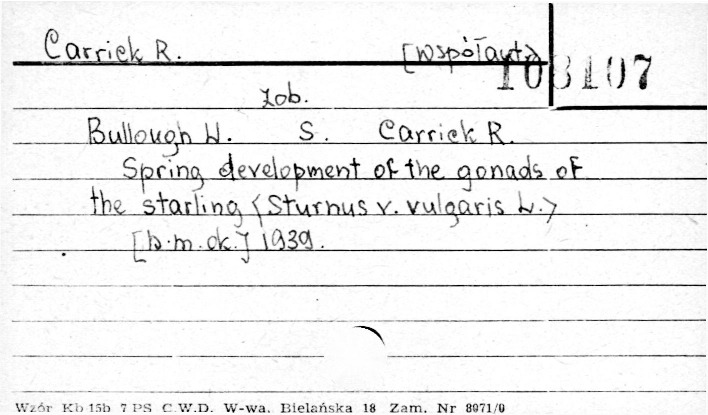 Carrick R. [współaut.]
103107
zob.
Bullough W. S. Carrick R.
Spring development of the gonads of
the starling (Sturnus v. vulgaris L.)
[b.m.dr.] 1939.
Wzór Kb 15b 7 PS C.W.D. W-wa, Bielańska 18 Zam. Nr 8071/0